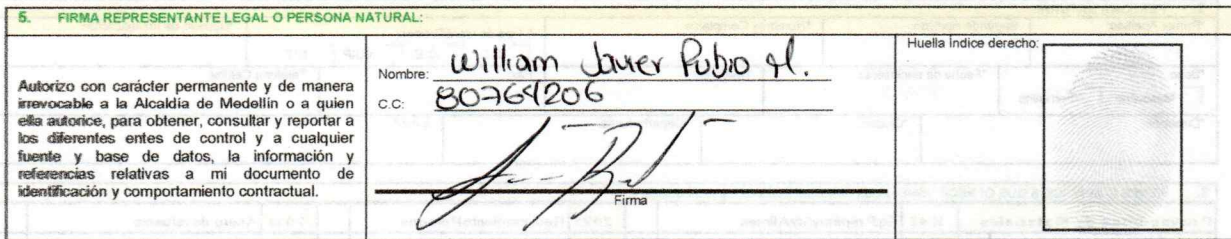 5. FIRMA REPRESENTANTE LEGAL O PERSONA NATURAL:
Autorizo con carácter permanente y de manera
irrevocable a la Alcaldía de Medellín o a quien
ella autorice, para obtener, consultar y reportar a
los diferentes entes de control y a cualquier
fuente y base de datos, la información y
referencias relativas a mi documento de
identificación y comportamiento contractual.
Nombre: William Javier Rubio H.
C.C: 80764206
Firma
Huella Índice derecho: